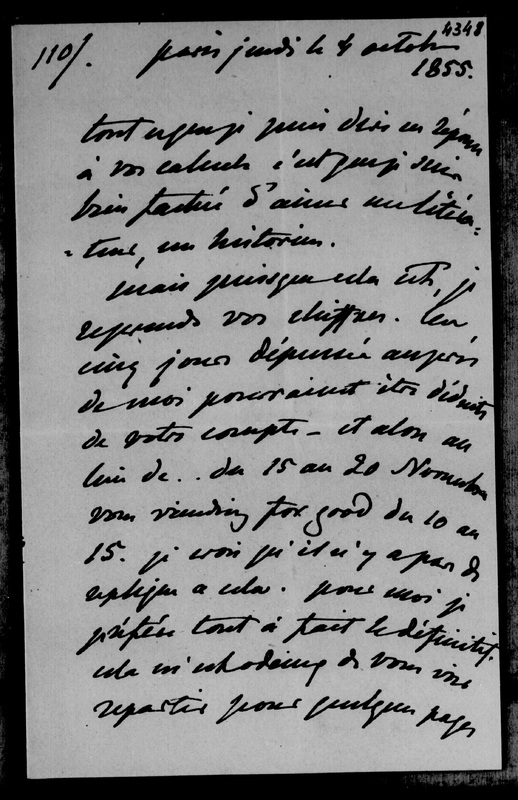 4348
110/. paris jeudi le 4 octobre
1855.
tout ce que je puis dire en répon
à vos calculs c'est que je suis
bien fachée d'aimer un littéra=
=teur, un historien.
mais puisque cela est, je
reprends vos chiffres. les
cinq jours dépensés auprès
de moi pourraient être déduits
de votre compte - et alors au
lieu de.. du 15 au 20 Novembre
vous viendriez for good du 10 au
15. je crois qu'il n'y a pas de
réplique a cela. pour moi je
préfère tout à fait le définitif.
cela m'est odieux de vous voir
repartir pour quelques pages